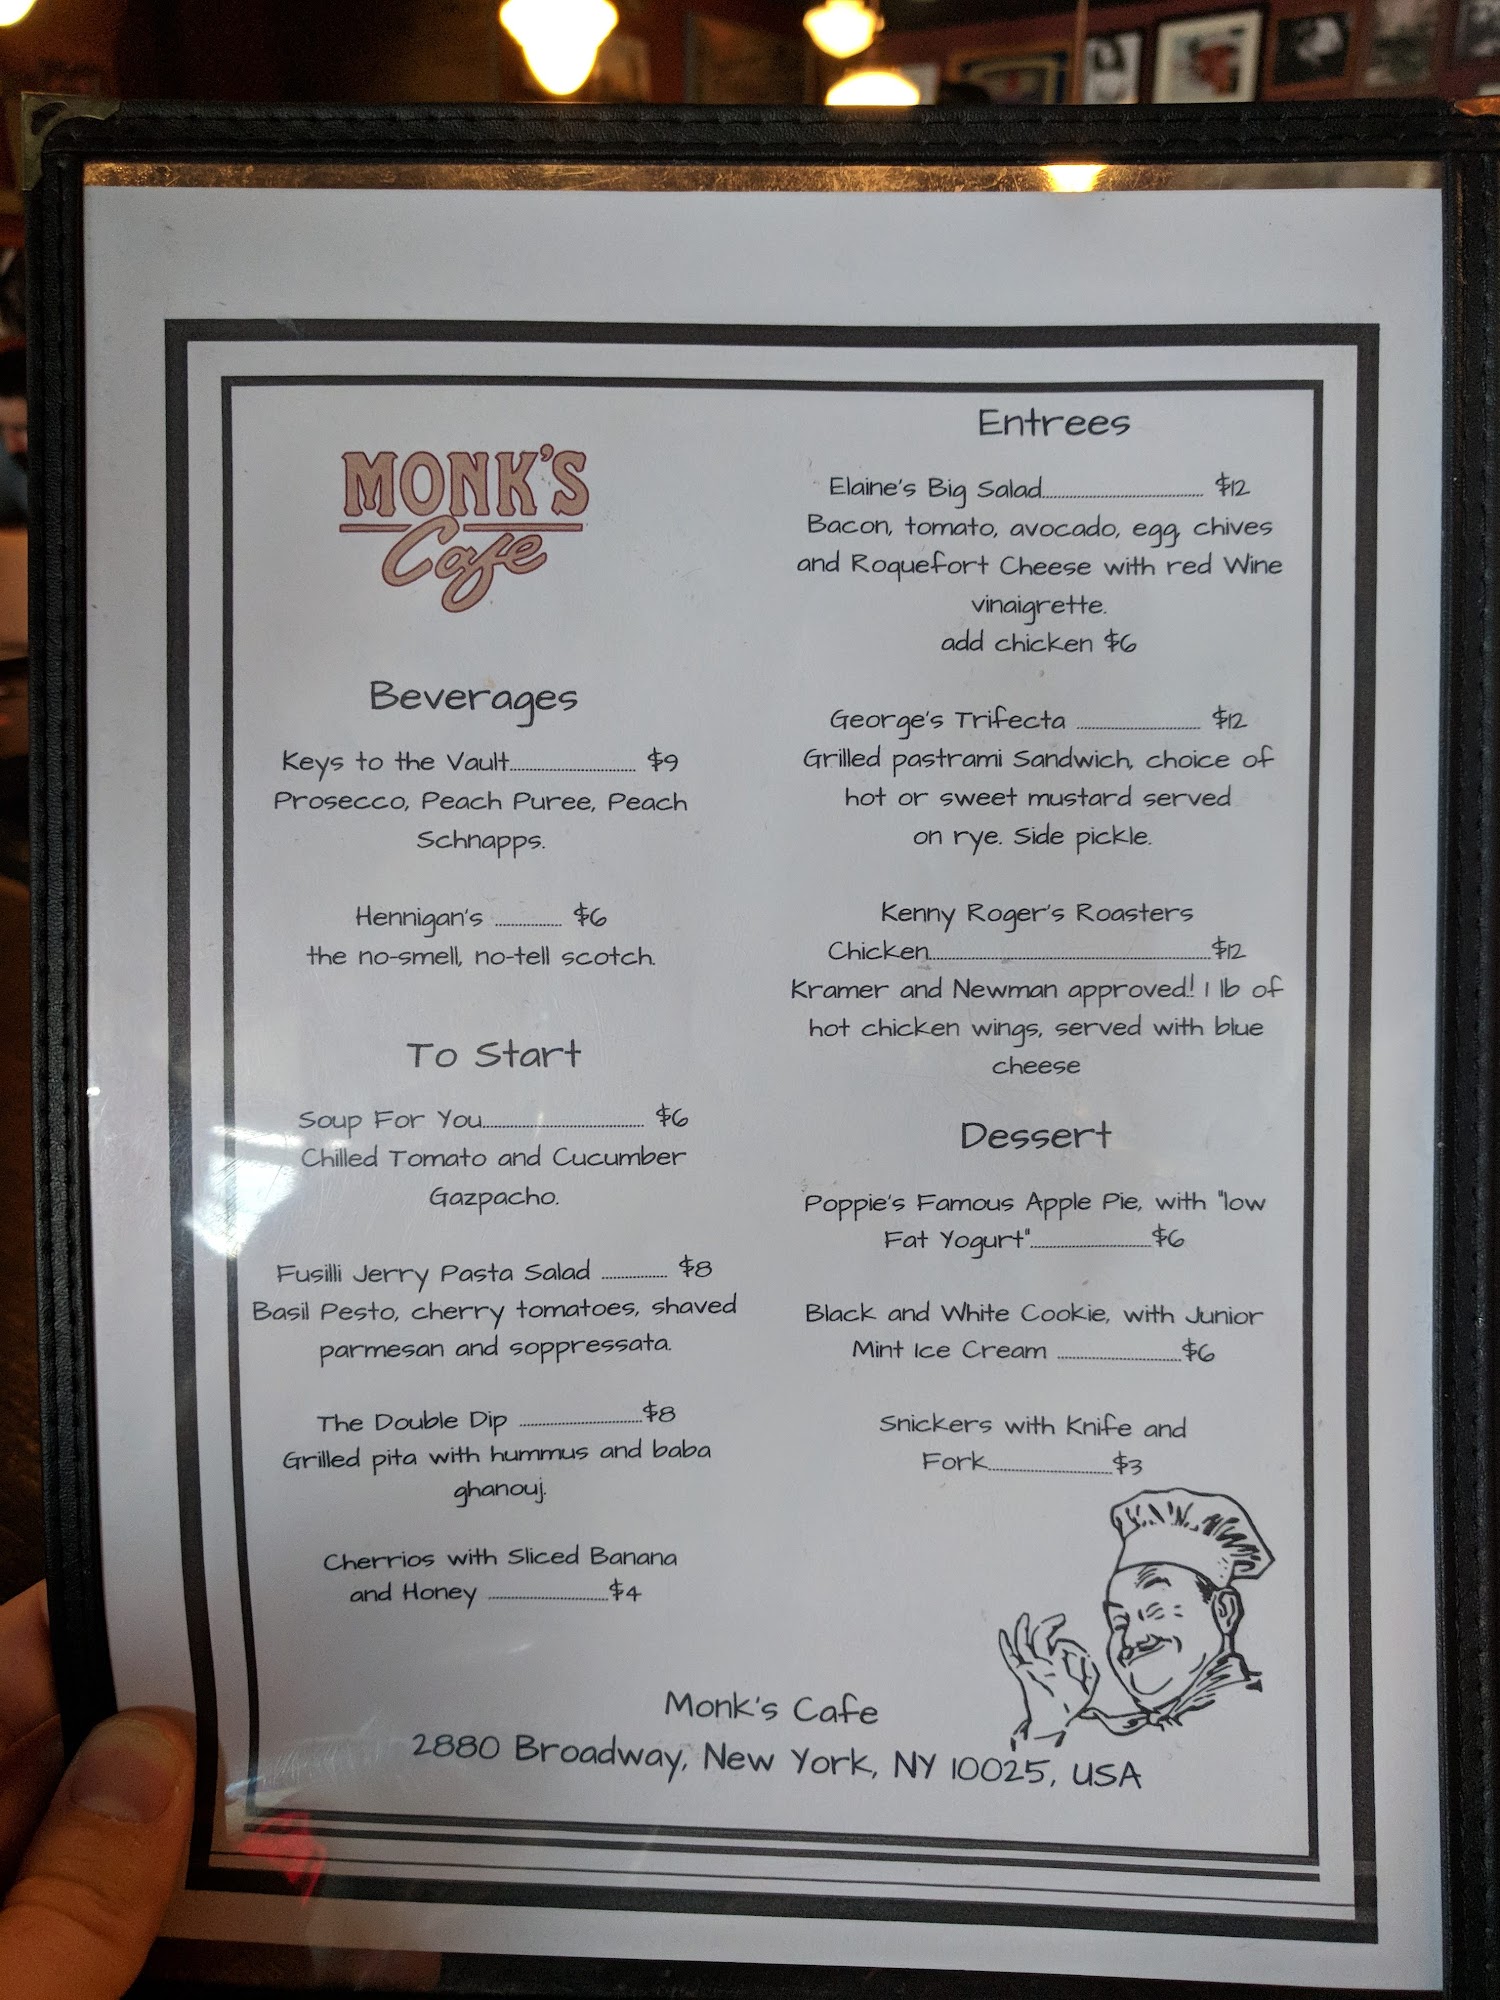 MONK'S
Cafe
Beverages
Keys to the Vault.............................. $9
Prosecco, Peach Puree, Peach
Schnapps.
Hennigan's ................ $6
the no-smell, no-tell scotch.
To Start
Soup For You...................................... $6
Chilled Tomato and Cucumber
Gazpacho.
Fusilli Jerry Pasta Salad ............... $8
Basil Pesto, cherry tomatoes, shaved
parmesan and soppressata.
The Double Dip .............................$8
Grilled pita with hummus and baba
ghanouj.
Cherrios with Sliced Banana
and Honey ............................$4
Entrees
Elaine's Big Salad...................................... $12
Bacon, tomato, avocado, egg, chives
and Roquefort Cheese with red Wine
vinaigrette.
add chicken $6
George's Trifecta ............................. $12
Grilled pastrami Sandwich, choice of
hot or sweet mustard served
on rye. Side pickle.
Kenny Roger's Roasters
Chicken..................................................................$12
Kramer and Newman approved! 1 lb of
hot chicken wings, served with blue
cheese
Dessert
Poppie's Famous Apple Pie, with "low
Fat Yogurt"............................$6
Black and White Cookie, with Junior
Mint Ice Cream .............................$6
Snickers with Knife and
Fork.............................$3
Monk's Cafe
2880 Broadway, New York, NY 10025, USA